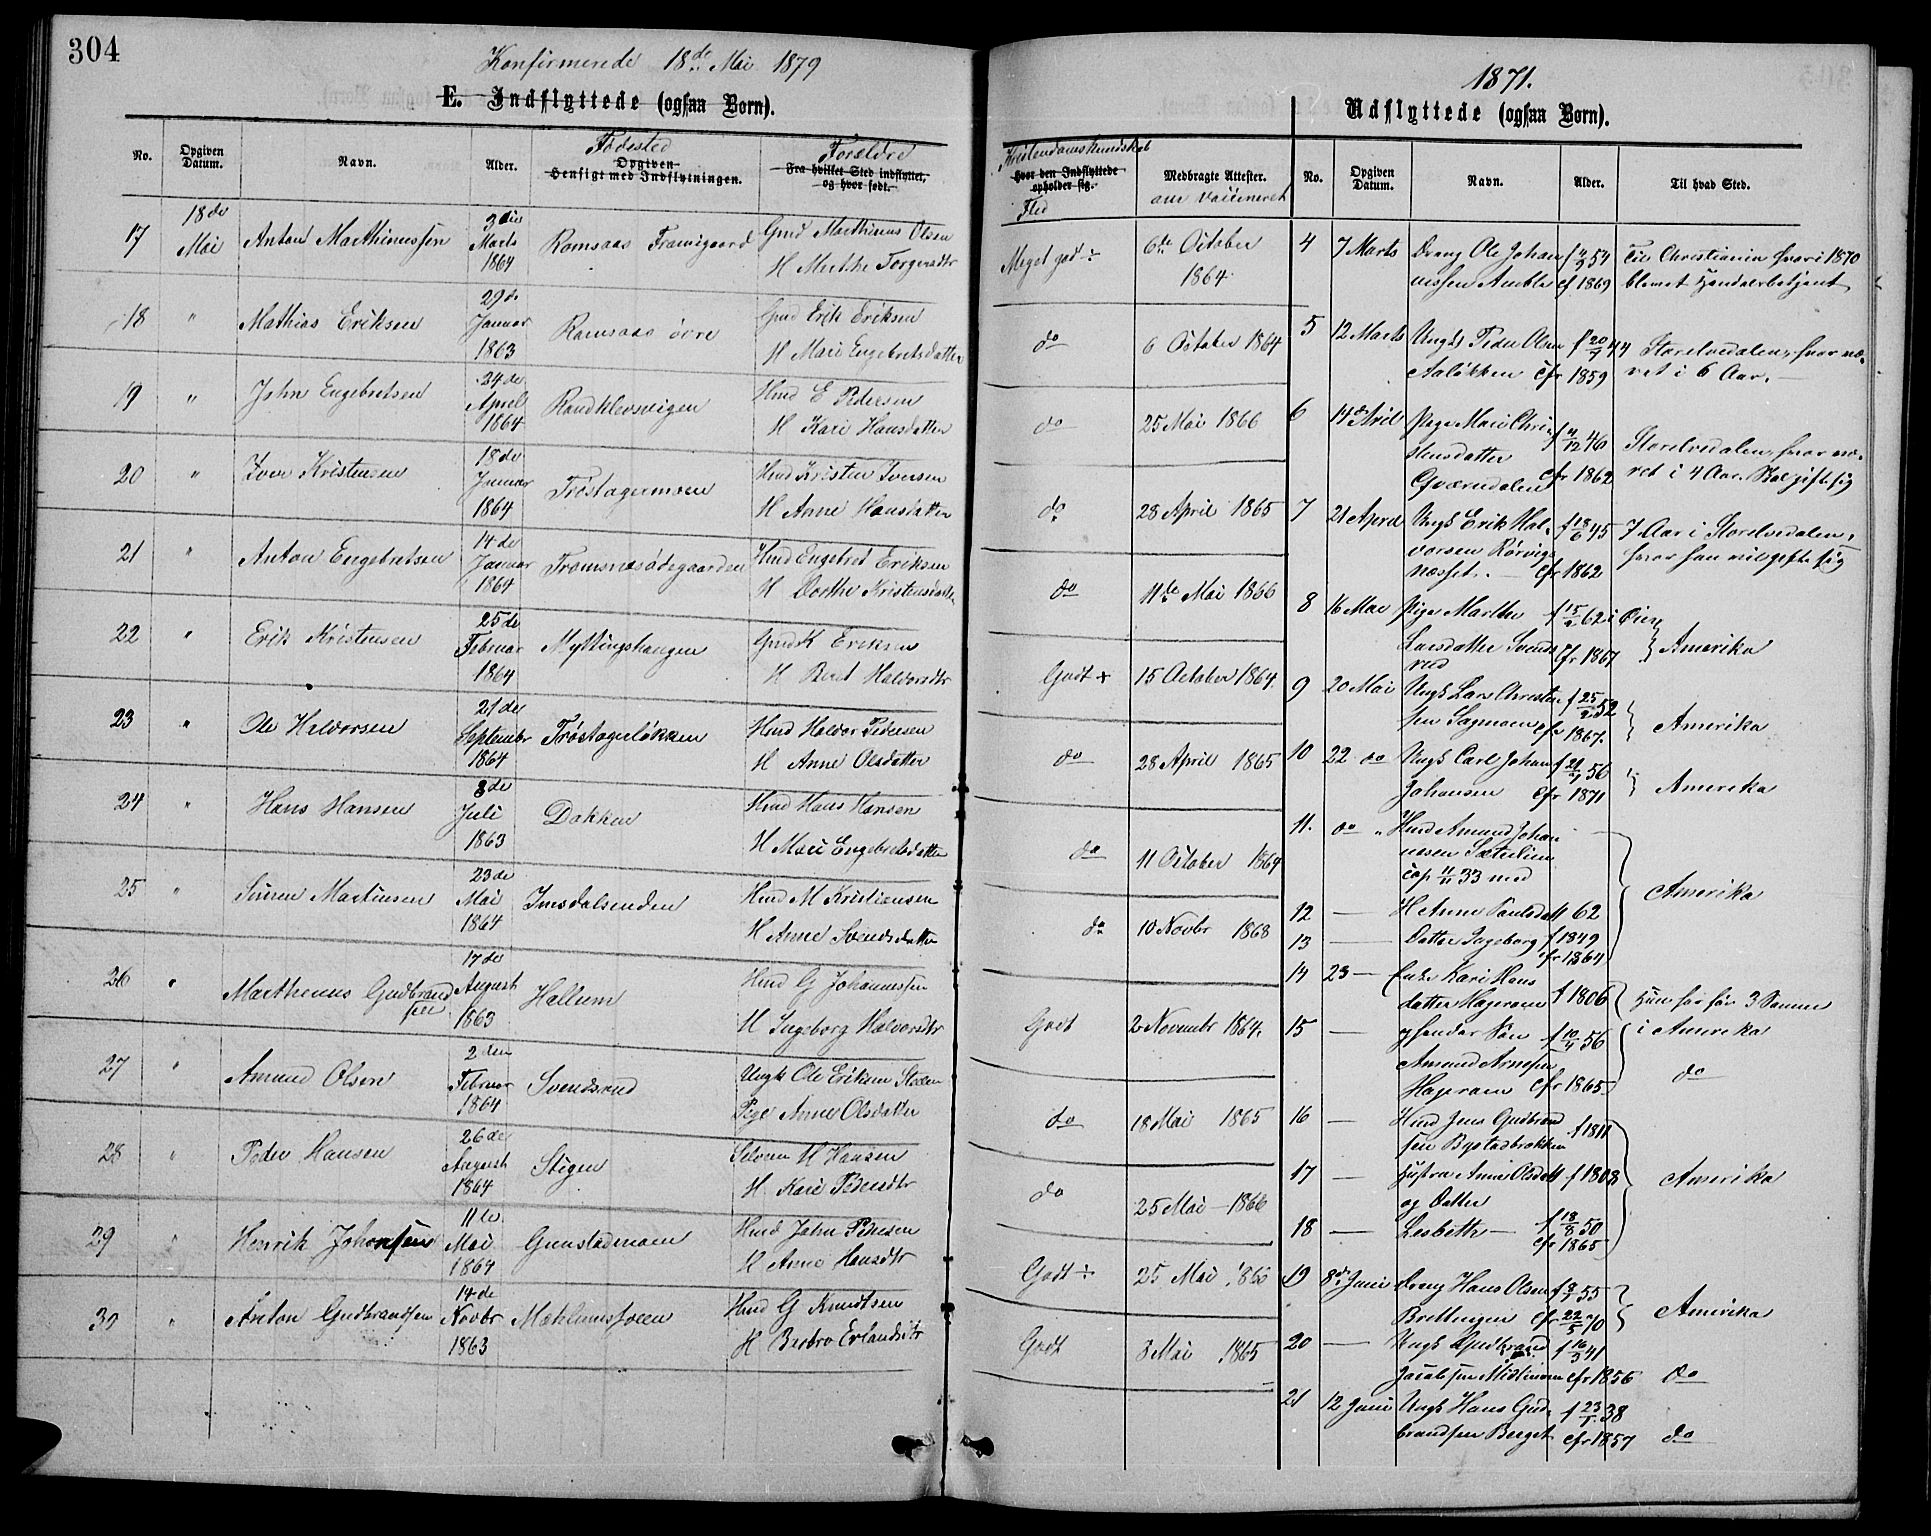 304
Konfirmerede 18de Mai 1879
E. Indflyttede (ogsaa Born).
No. Opgiven Datum. Navn. Alder. Fødested Forældre
Opgiven Hensigt med Indflytningen. Fra hvilket Sted indflyttet, og hvor født.
Kristendomskundskab
Hvor den Indflyttede opholder sig. Medbragte Attester.
Flid
vaccineret
17 18de Mai Anton Marthinussen 3die Marts 1864 Ramsaas Gmd Marthinus Olsen
H Marthe Torgersdtr Meget godt ÷ 6te October 1864
18 " Mathias Eriksen 29de Januar 1863 Ramsaas øvre Gmd Erik Eriksen
H Mari Engebretsdatter do 6 October 1864
19 " John Engebretsen 24de April 1864 Randklevsveigen Hmd E Pedersen
H Kari Hansdatter do 25 Mai 1866
20 " Iver Kristensen 18de Januar 1864 Trøstagermoen Hmd Kristen Iversen
H Anne Hansdatter do 28 April 1865
21 " Anton Engebretsen 14de Januar 1864 Tromsnæsødegaarden Hmd Engebret Eriksen
H Dorthe Kristensdatter do 11te Mai 1866
22 " Erik Kristensen 25de Februar 1864 Myttingshaugen Gmd K Eriksen
H Berit Halvorsdtr Godt + 15 October 1864.
23 " Ole Halvorsen 21de Septembr 1864 Trøstagerløkken Hmd Halvor Pedersen
H Anne Olsdatter do 28 April 1865
24 " Hans Hansen 8de Juli 1863 Dakken Hmd Hans Hansen
H Mari Engebretsdatter do 11 October 1864
25 " Simen Martinsen 23de Mai 1864 Imsdalsenden Hmd M Kristiansen
H Anne Svendsdatter do 10 Novbr 1868
26 " Marthinus Gudbrandsen 17de August 1863 Hallum Hmd G Johannessen
H Ingeborg Halvorsdtr Godt 2 Novembr 1864.
27 " Amund Olsen 2den Februar 1864 Svendsrud Ungk Ole Eriksen
Pige Anne Olsdatter do 18 Mai 1865
28 " Peder Hansen 26de August 1864 Stigen Selveier H Hansen
H Kari Pedersdtr do 25 Mai 1866
29 " Henrik Johansen 11te Mai 1864 Gunstadmoen Hmd John Pedersen
H Anne Hansdtr Godt ÷ 25 Mai 1866
30 " Anton Gudbrandsen 14de Novbr 1863 Hmd G Knudtsen
H Barbro Erlandsdtr Godt 8 Mai 1865
1871.
Udflyttede (ogsaa Born).
No. Opgiven Datum. Navn. Alder. Til hvad Sted.
4 7 Marts Dreng Ole Johan- 54 Til Christiania hvor i 1870
nessen cf 1869 blevet Handelsbetjent
5 12 Marts Ungk Peder Olsen f 20/7 44 Storelvedalen, hvor væ-
Aaløkken cfr 1859 ret i 6 Aar.
6 14de April Pige Mari Chri- 12 40 Storelvedalen, hvor væ-
stensdatter
Qværndalen cfr 1862 ret i 4 Aar. Skal gifte sig
7 21 April Ungk Erik Hal- f 18/6 45 7 Aar i Storelvedalen,
vorsen Rørvigs- hvor han vil gifte sig
næsset. cfr 1862
8 16 Mai Pige Marthe f 15 62 i Øien
Larsdatter Svends- cfr 1867 Amerika
rud
9 20 Mai Ungk Lars Christen- f 25/2 52
sen Sagmoen cfr 1867. Amerika
10 22 do Ungk Carl Johan f 21 56
Johansen cfr 1871 Amerika
11. do " Hmd Amund Johan-
nesen Sæterlien
cop 33 med
12 — H Anne Paulsdatt 62 Amerika
13 — Datter Ingeborg f 1849
cfr 1864
14 23 — Enke Kari Hans-
datter Hageram f 1806 Hun har før 3 Sønner
15 — og hendes Søn f 10/4 56 i Amerika
Amund Arnesen
Hageram cfr 1865 do
16 — Hmd Jens Gudbrand-
sen Bystadbrækken f 1811
17 — Hustru Anne Olsdatt f 1808 Amerika
og Datter
18 — Lisbeth — f 18/8 50
cfr 1865
19 8de Juni Dreng Hans Olsen f 55
Brettingen cfr 22/5 70 Amerika
20 — Ungk Gudbrand f 16/3 41
Jacobsen cfr 1856 do
21 12 Juni Ungk Hans Gud- f 23 38
brandsen Berget cfr 1857 do